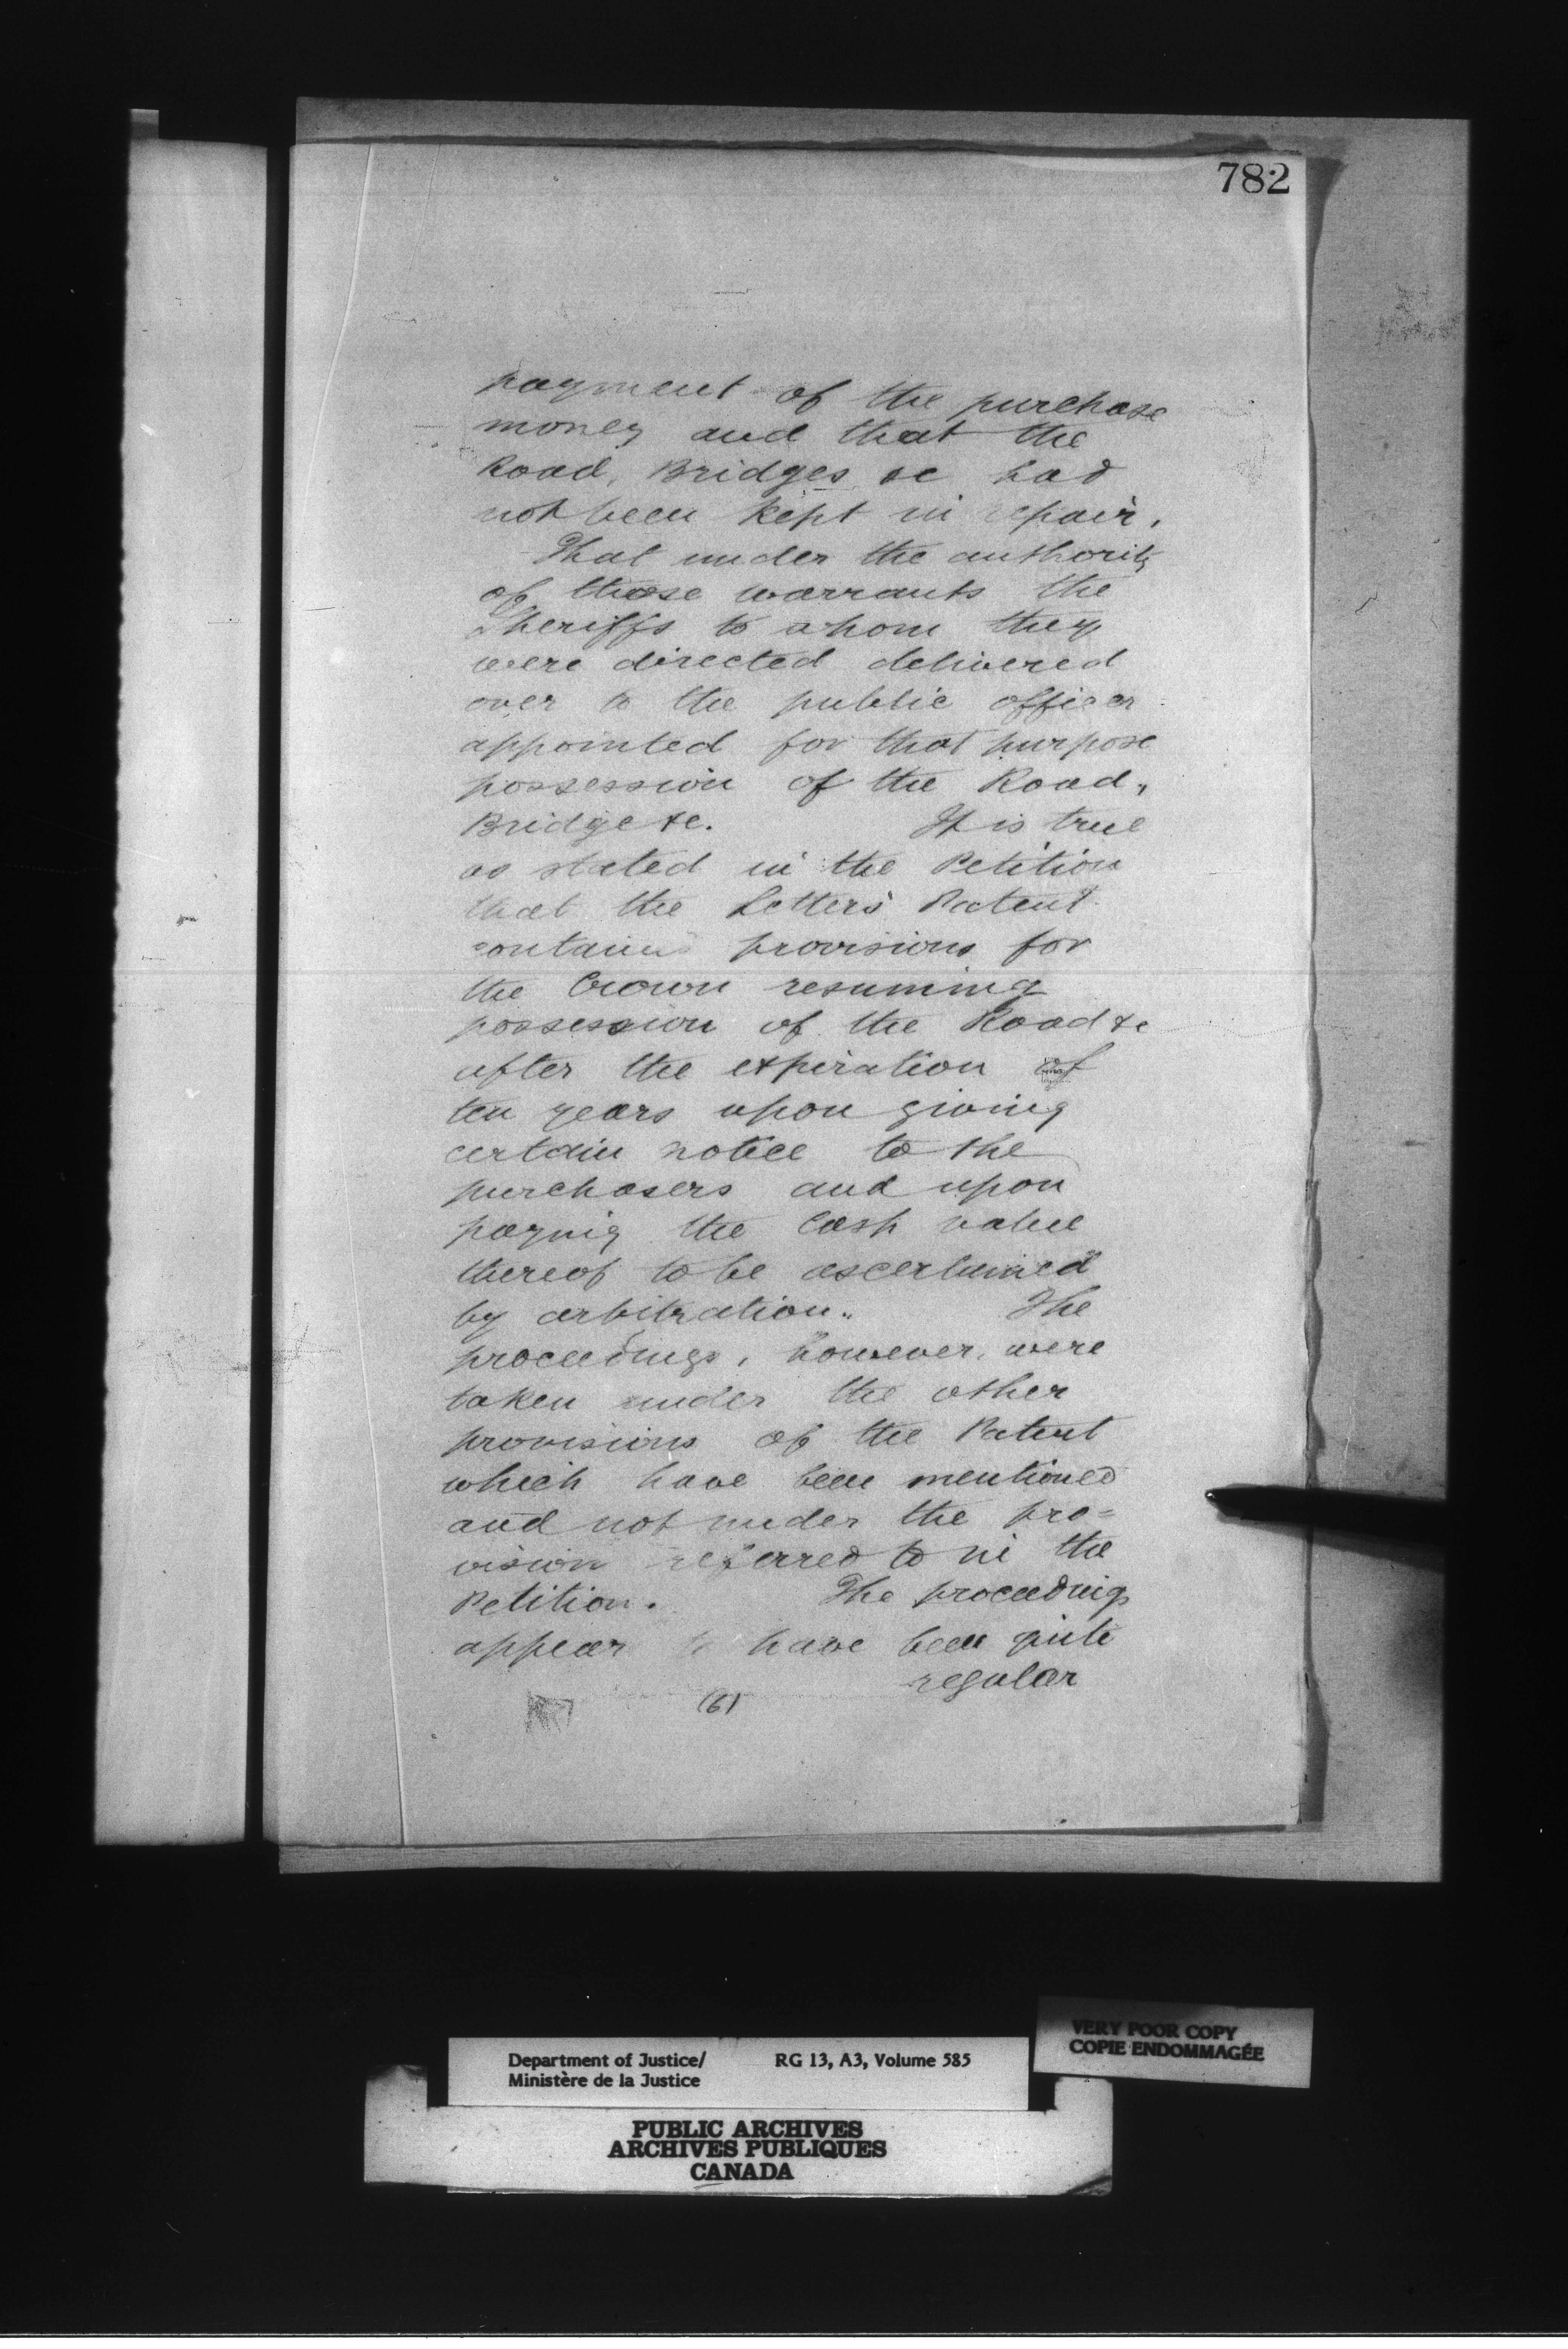 782
payment of the purchase
money and that the
Road, Bridges &c had
not been kept in repair.
That under the authority
of those warrants the
Sheriffs to whom they
were directed delivered
over to the public officer
appointed for that purpose
possession of the Road,
Bridge &c. It is true
as stated in the Petition
that the Letters Patent
contains provisions for
the Crown resuming
possession of the Road &c
after the expiration of
ten years upon giving
certain notice to the
purchasers and upon
paying the cash value
thereof to be ascertained
by arbitration. The
proceedings, however, were
taken under the other
provisions of the Patent
which have been mentioned
and not under the pro=
vision referred to in the
Petition. The proceedings
appear to have been quite
regular
(6)
VERY POOR COPY
COPIE ENDOMMAGÉE
Department of Justice/ RG 13, A3, Volume 585
Ministère de la Justice
PUBLIC ARCHIVES
ARCHIVES PUBLIQUES
CANADA